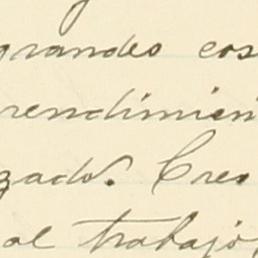 grandes cos
rendimien
zado. Creo
al trabajo,